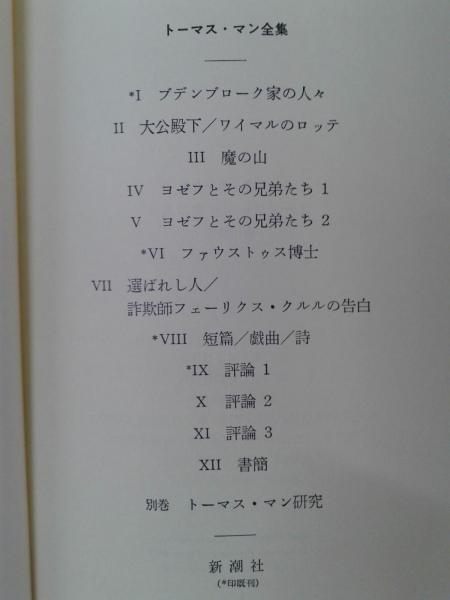 トーマス・マン全集
*I ブデンブローク家の人々
II 大公殿下／ワイマルのロッテ
III 魔の山
IV ヨゼフとその兄弟たち 1
V ヨゼフとその兄弟たち 2
*VI ファウストゥス博士
VII 選ばれし人／
詐欺師フェーリクス・クルルの告白
*VIII 短篇／戯曲／詩
*IX 評論 1
X 評論 2
XI 評論 3
XII 書簡
別巻 トーマス・マン研究
新潮社
(*印既刊)